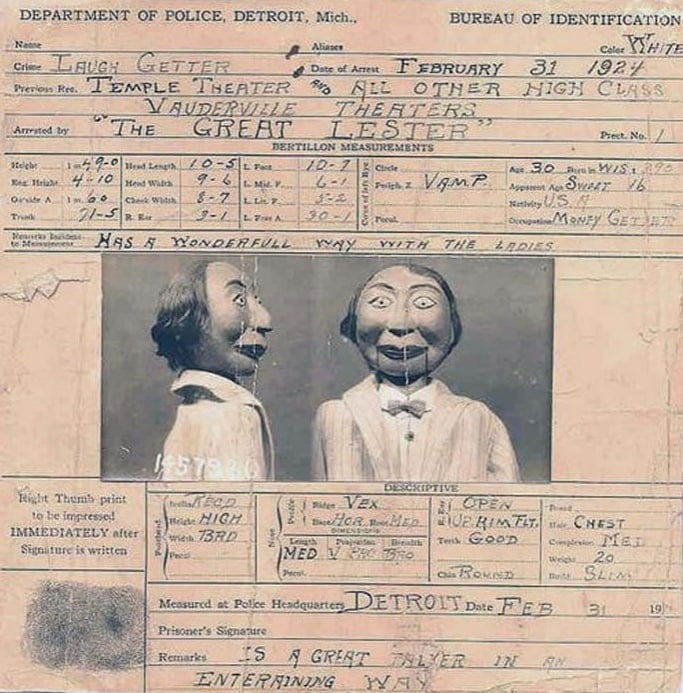 DEPARTMENT OF POLICE, DETROIT, Mich., BUREAU OF IDENTIFICATION
Name Aliases Color WHITE
Crime LAUGH GETTER Date of Arrest FEBRUARY 31 1924
Previous Rec. TEMPLE THEATER AND ALL OTHER HIGH CLASS
VAUDERVILLE THEATERS
Arrested by "THE GREAT LESTER" Prect. No. 1
BERTILLON MEASUREMENTS
Height 1 m 49-0 Head Length 10-5 L. Foot 10-7 Circle Age 30 Born in WIS
Eng. Height 4-10 Head Width 9-6 L. Mid. F. 6-1 Periph. Z VAMP. Apparent Age SWEET 16
Outside A 1 m. 60 Cheek Width 8-7 L. Lit. F. 5-2 Nativity U.S.A
Trunk 71-5 R. Ear 9-1 L. Fore A. 30-1 Pecul. Occupation MONEY GETTER
Color of Left Eye
Remarks Incident to Measurement HAS A WONDERFULL WAY WITH THE LADIES
DESCRIPTIVE
Right Thumb print
to be impressed
IMMEDIATELY after
Signature is written
Forehead
Height HIGH
Width BRD
Pecul.
Nose
Profile
Ridge VEX
Base HOR. Root MED
DIMENSIONS
Length Projection Breadth
MED
Pecul.
R. Ear
OPEN
UP. RIM FLT.
Teeth GOOD
Chin ROUND
Beard
Hair CHEST
Complexion MED
Weight 20
Build SLIM
Measured at Police Headquarters DETROIT Date FEB 31 19
Prisoner's Signature
Remarks IS A GREAT TALKER IN AN
ENTERAINING WAY